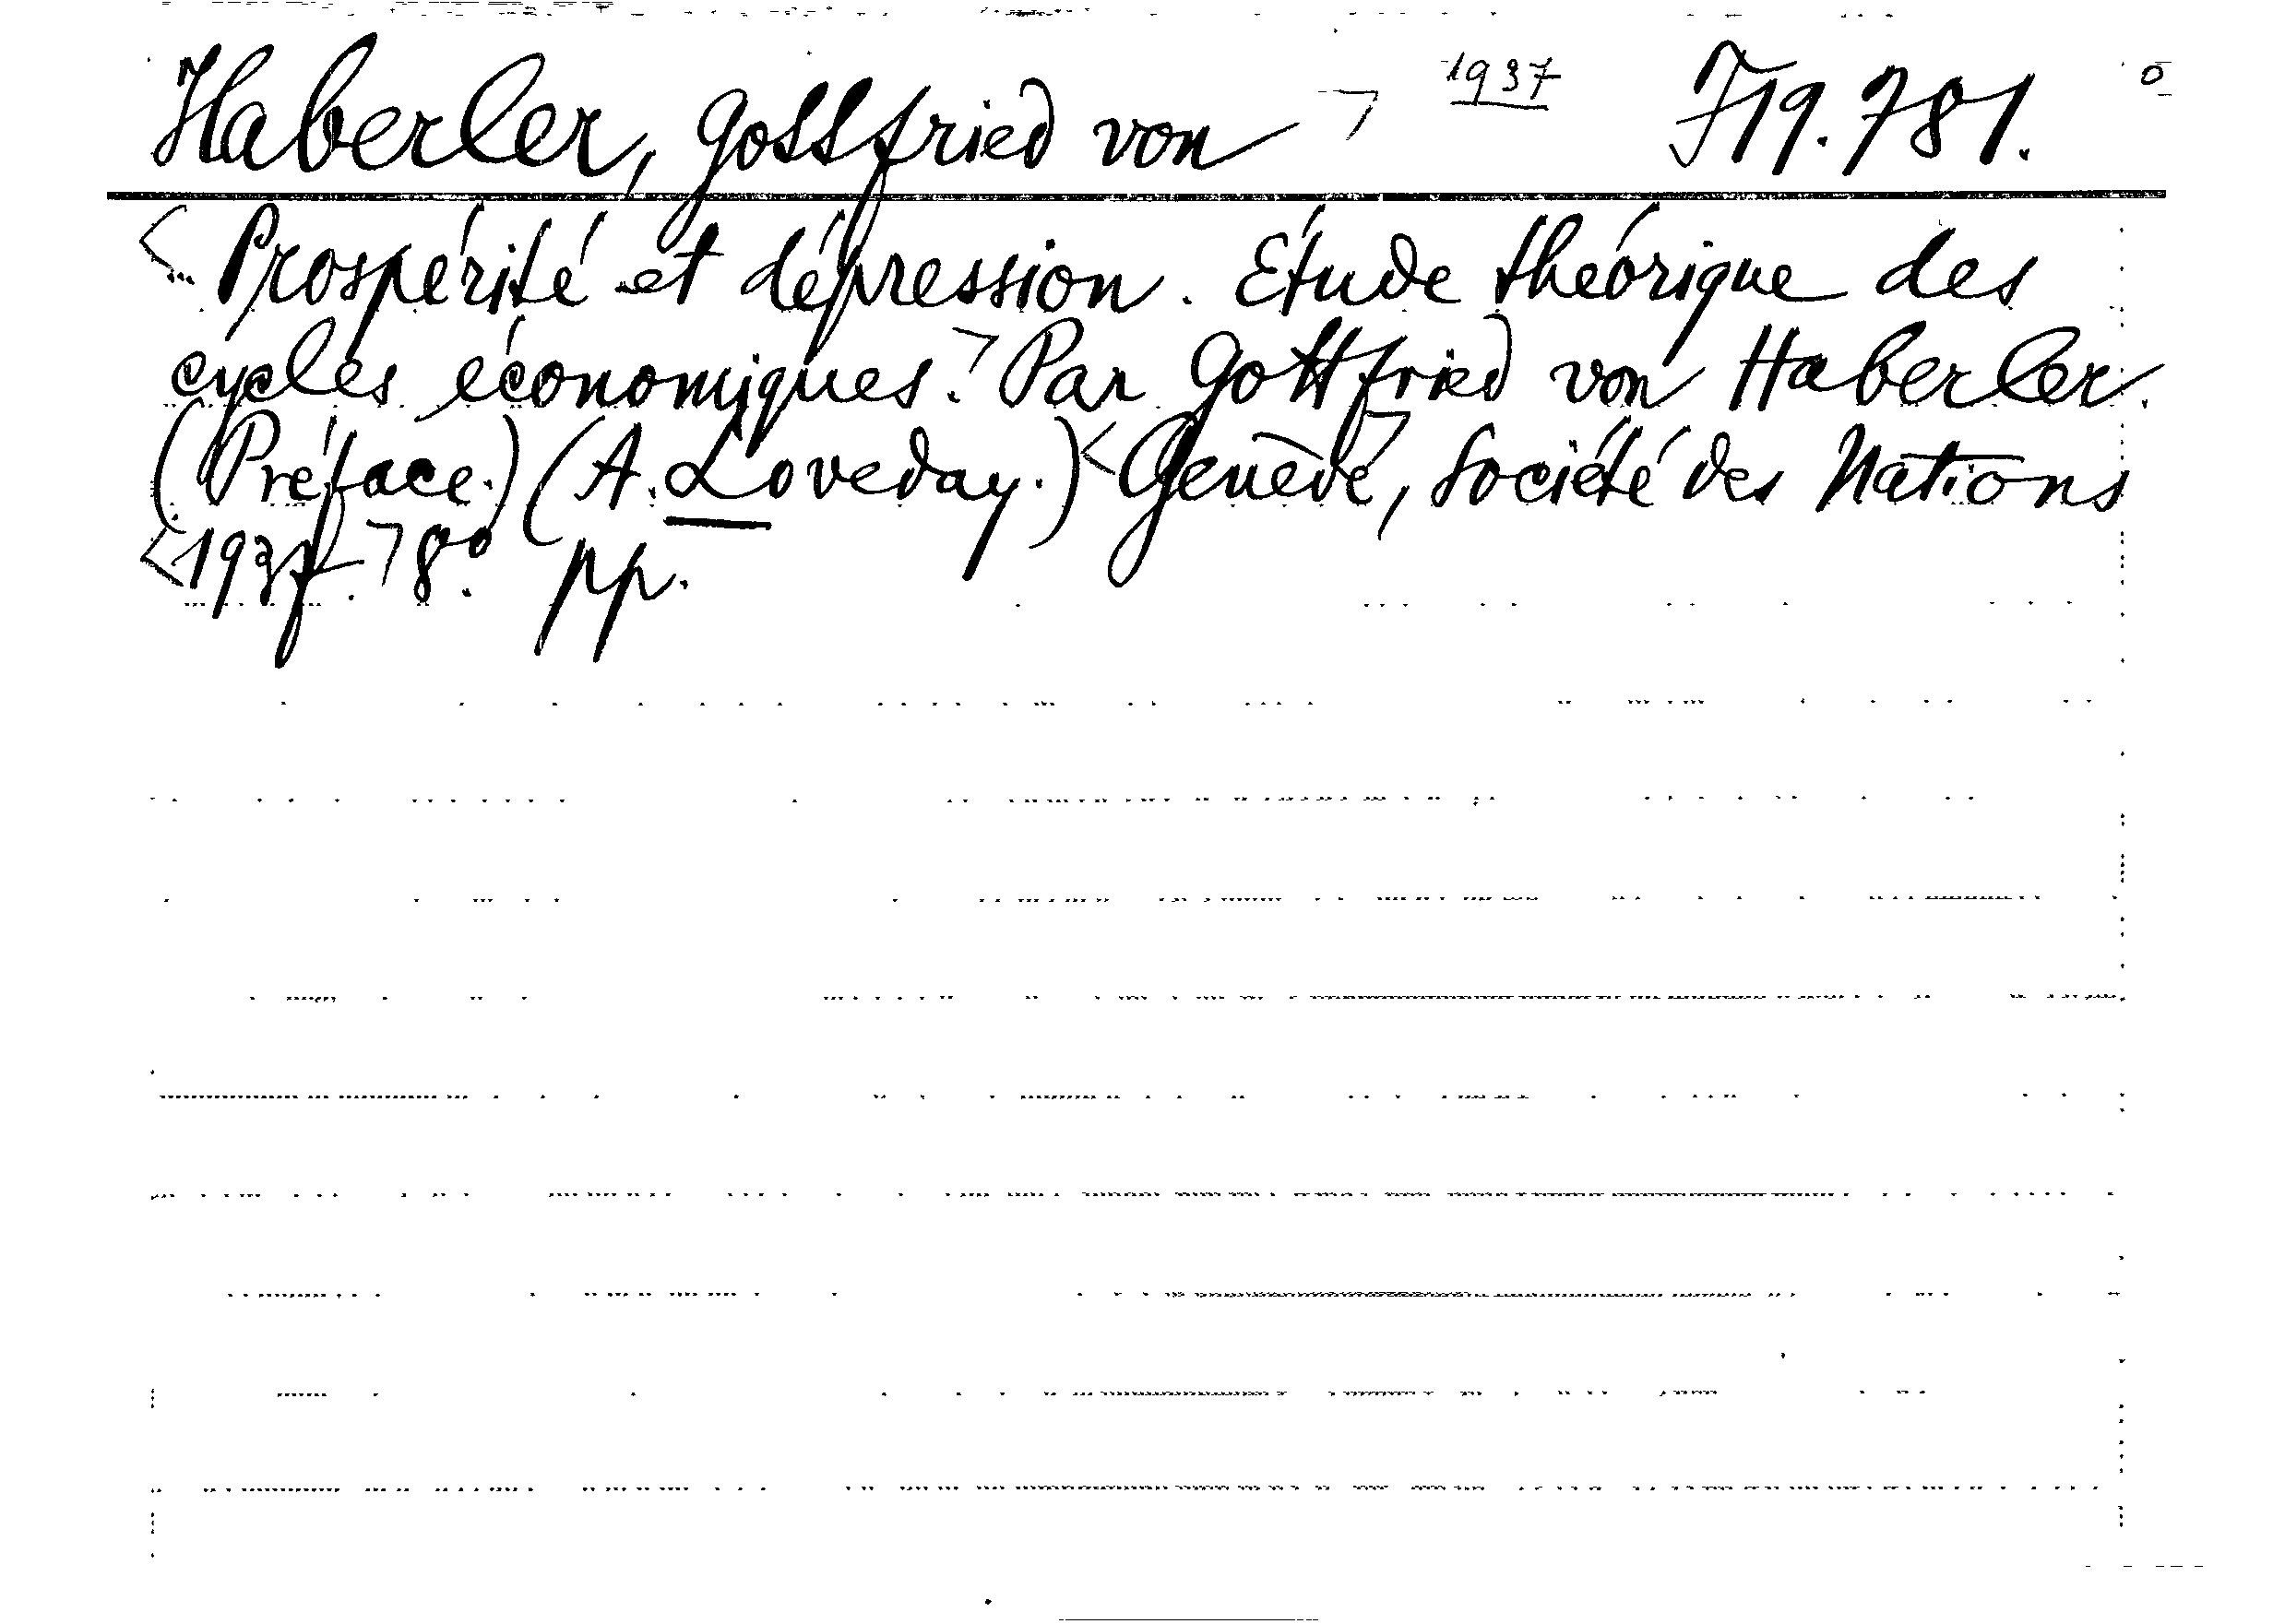 Haberler, Gottfried von ¬ 1937 J 19.781. o
< Prospérité et dépression. Étude théorique des
cycles économiques.¬ Par Gottfried von Haberler.
(Préface.) (A. Loveday.) < Genève,¬ Société des Nations
<1937.¬ 8º. pp.